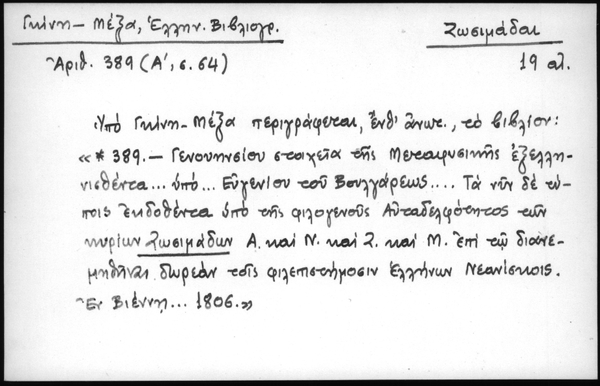 Γκίνη - Μέξα, Ἑλλην. Βιβλιογρ.
Ζωσιμάδαι
Ἀριθ. 389 (Α', σ. 64)
19 αἰ.
Ὑπό Γκίνη - Μέξα περιγράφεται, ἔνθ' ἄνωτ., τό βιβλίον:
«* 389. - Γενουηνσίου στοιχεῖα τῆς Μεταφυσικῆς ἐξελλη-
νισθέντα... ὑπό... Εὐγενίου τοῦ Βουλγάρεως.... Τά νῦν δέ τύ-
ποις ἐκδοθέντα ὑπό τῆς φιλογενοῦς Αὐταδελφότητος τῶν
κυρίων Ζωσιμάδων Α. καί Ν. καί Ζ. καί Μ. ἐπί τῷ διανε-
μηθῆναι δωρεάν τοῖς φιλεπιστήμοσιν Ἑλλήνων Νεανίσκοις.
Ἐν Βιέννῃ... 1806.»